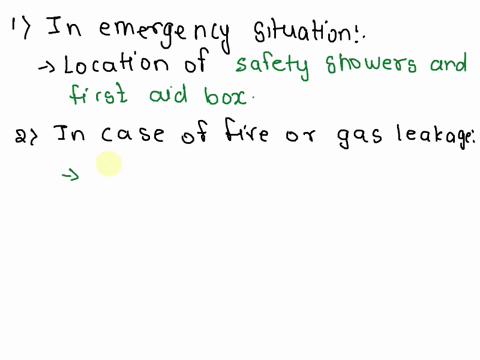 1) In emergency situation!.
→ Location of safety showers and
first aid box.
2) In case of fire or gas leakage:
→